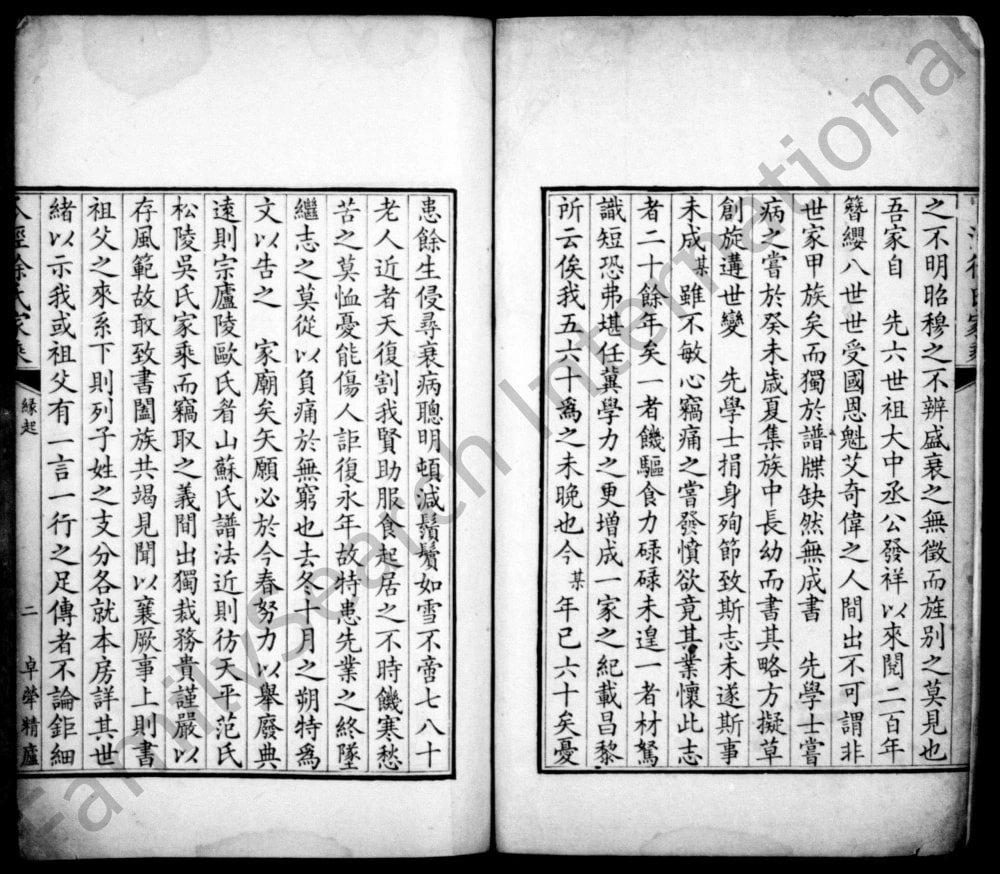 之不明昭穆之不辨盛衰之無徵而旌別之莫見也
吾家自　先六世祖大中丞公發祥以來閱二百年
簪纓八世世受國恩魁艾奇偉之人間出不可謂非
世家甲族矣而獨於譜牒缺然無成書　先學士嘗
病之嘗於癸未歲夏集族中長幼而書其略方擬草
創旋遘世變　先學士捐身殉節致斯志未遂斯事
未成某雖不敏心竊痛之嘗發憤欲竟其業懷此志
者二十餘年矣一者饑驅食力碌碌未遑一者材駑
識短恐弗堪任冀學力之更增成一家之紀載昌黎
所云俟我五六十爲之未晚也今某年已六十矣憂
患餘生侵尋衰病聰明頓減鬚鬢如雪不啻七八十
老人近者天復割我賢助服食起居之不時饑寒愁
苦之莫恤憂能傷人詎復永年故特患先業之終墜
繼志之莫從以負痛於無窮也去冬十月之朔特爲
文以告之　家廟矣矢願必於今春努力以舉廢典
遠則宗廬陵歐氏眷山蘇氏譜法近則彷天平范氏
松陵吳氏家乘而竊取之義間出獨裁務貴謹嚴以
存風範故敢致書闔族共竭見聞以襄厥事上則書
祖父之來系下則列子姓之支分各就本房詳其世
緒以示我或祖父有一言一行之足傳者不論鉅細
徐氏家乘
緣起
二
卓犖精廬
FamilySearch International